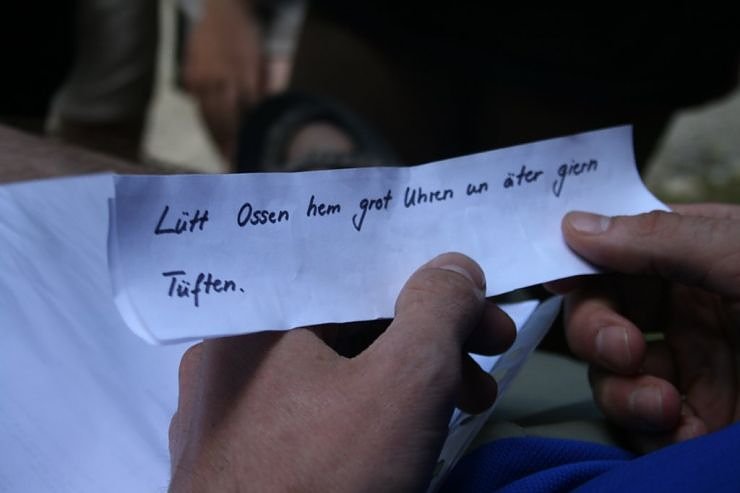 Lütt Ossen hem grot Uhren un äter giern
Tüften.